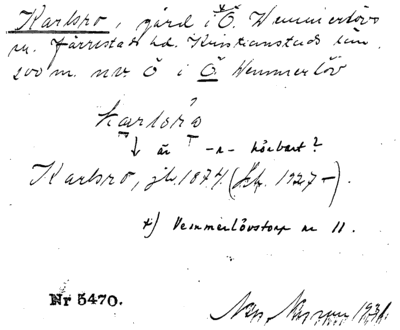 Karlsro, gård i *Ö. Vemmerlövs
sn. Järrestads hd. Kristianstads län.
200 m. nv Ö i Ö. Vemmerlöv
↓ är -n- hörbart?
Karlsro, jb. 1874 (Jrf. 1927-).
*) Vemmerlövstorp nr 11.
Nr 5470.
1931.